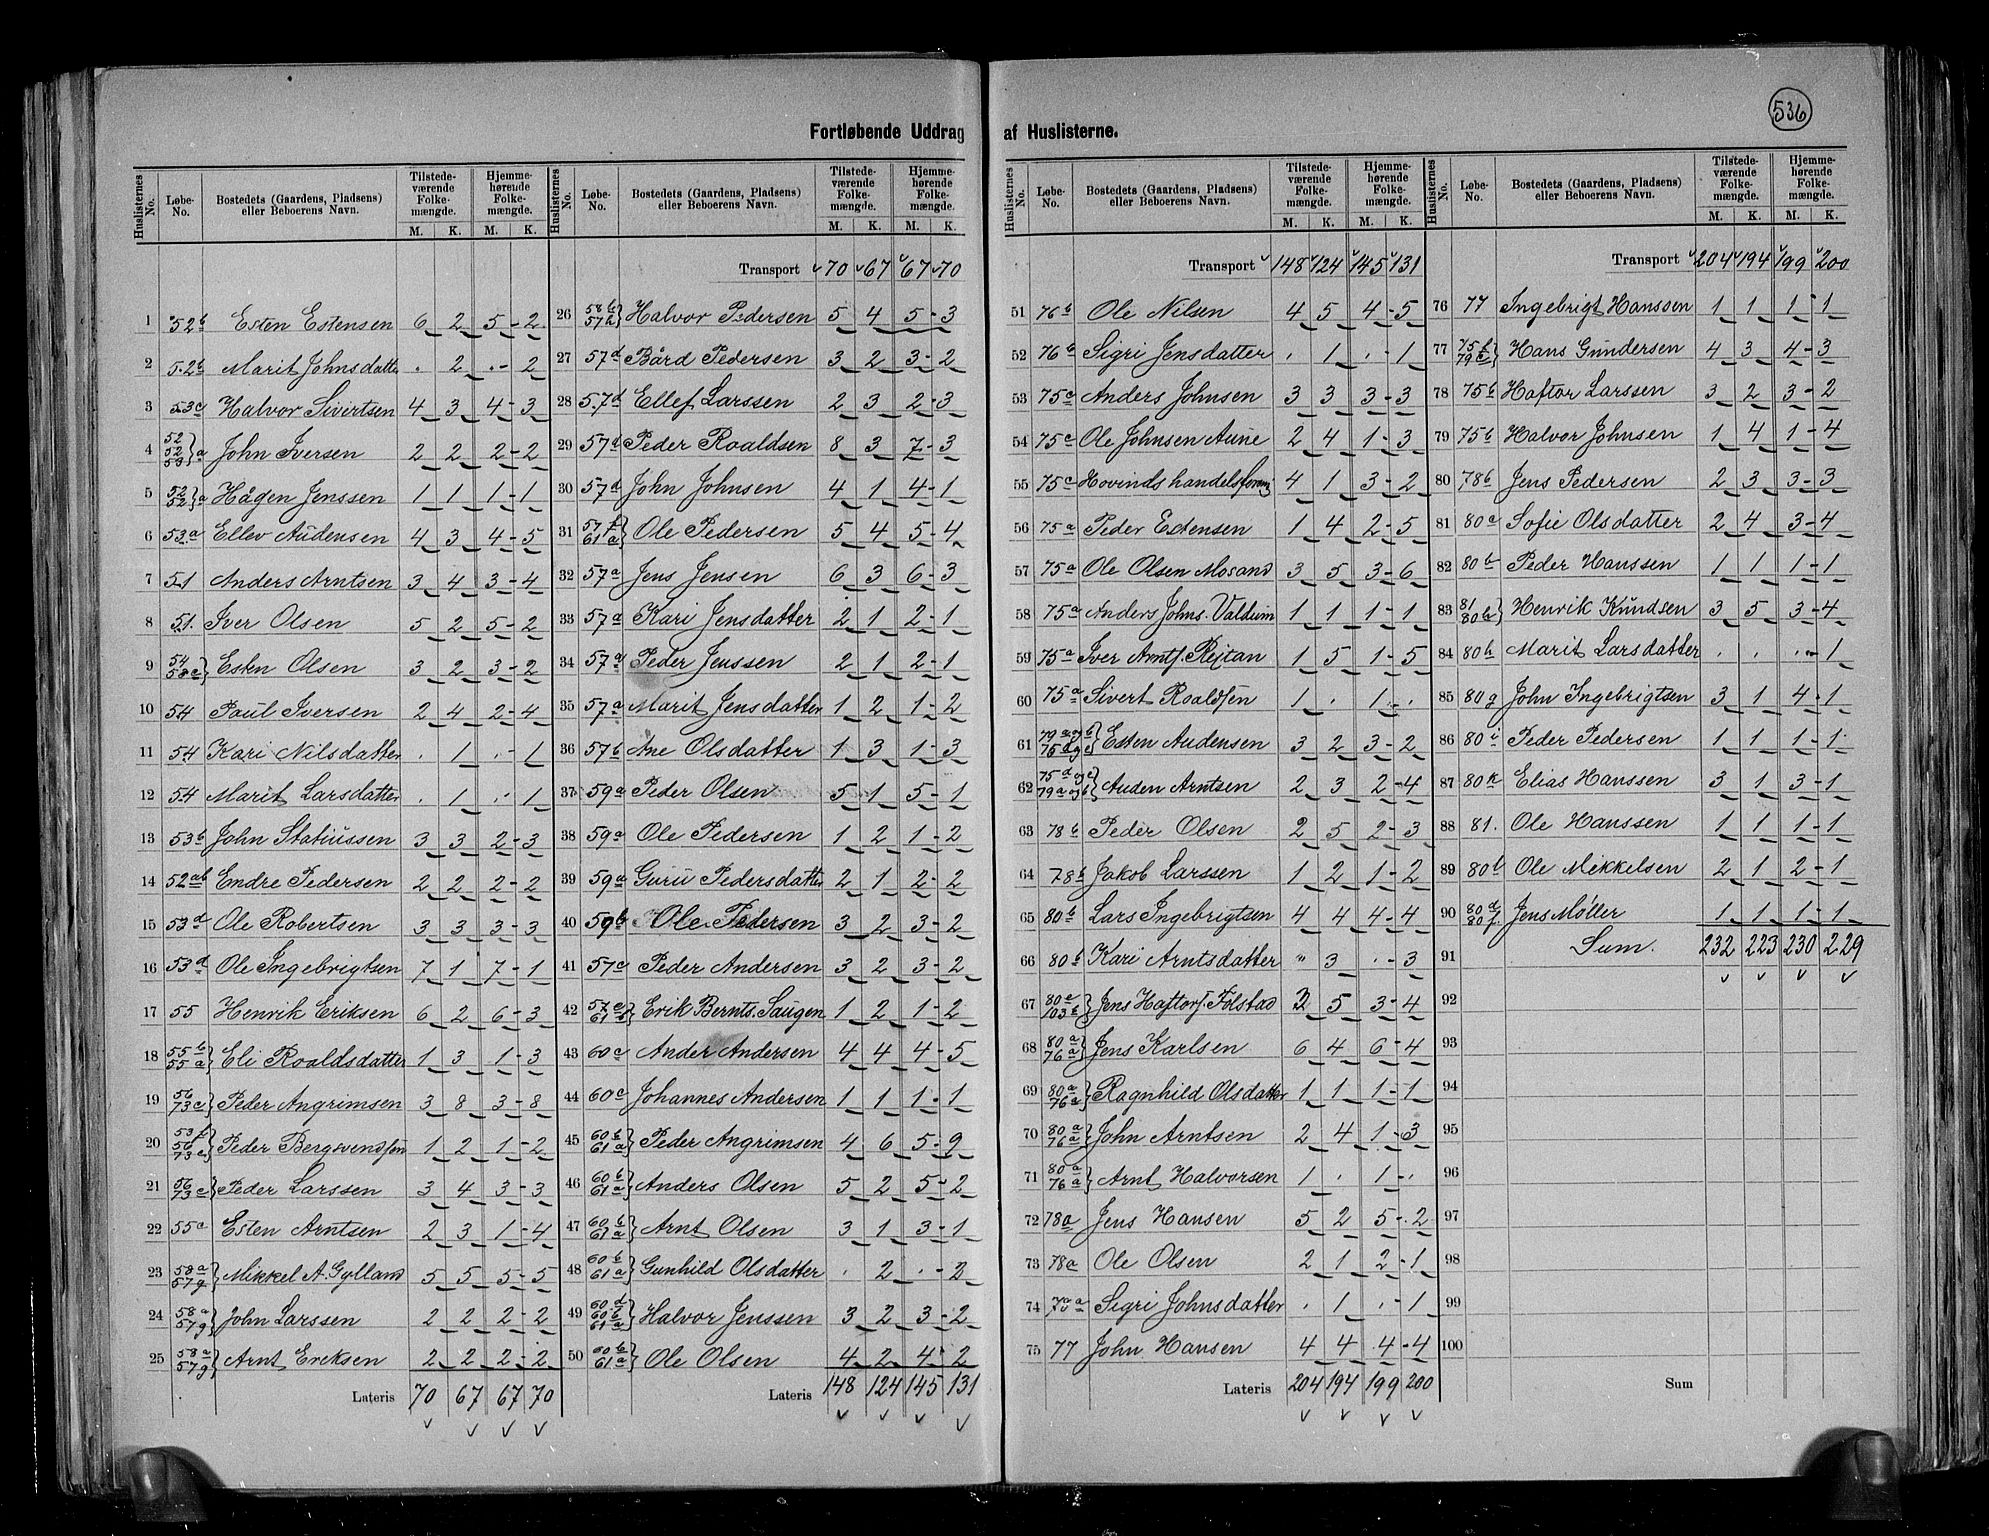 536
Fortløbende Uddrag af Huslisterne.
Huslisternes No. Løbe-No. Bostedets (Gaardens, Pladsens) eller Beboerens Navn. Tilstedeværende Folkemængde. M. K. Hjemmehørende Folkemængde. M. K.
1 52b Esten Estensen 6 2 5-2
2 52b Marit Johnsdatter . 2 .-2
3 53c Halvor Sivertsen 4 3 4-3
4 52 52 59}a John Iversen 2 2 2-2
5 52 52}a Hågen Jenssen 1 1 1-1
6 53a Ellev Audensen 4 3 4-5
7 51 Anders Arntsen 3 4 3-4
8 51. Iver Olsen 5 2 5-2
9 54 58c} Esten Olsen 3 2 3-2
10 54 Paul Iversen 2 4 2-4
11 54 Kari Nilsdatter . 1 .-1
12 54 Marit Larsdatter . 1 .-1
13 53b John Statiussen 3 3 2-3
14 52ab Endre Pedersen 2 2 2-2
15 53d Ole Robertsen 3 3 3-3
16 53d Ole Ingebrigtsen 7 1 7-1
17 55 Henrik Eriksen 6 2 6-3
18 55b 55a} Eli Roaldsdatter 1 3 1-3
19 56 73c} Peder Angrimsen 3 8 3-8
20 53f 56 73c} Peder Bergsvendsen 1 2 1-2
21 56 73c} Peder Larssen 3 4 3-3
22 55a Esten Arntsen 2 3 1-4
23 58a 57g} Mikkel A. Gylland 5 5 5-5
24 58a 57g} John Larssen 2 2 2-2
25 58a 57g} Arnt Ereksen 2 2 2-2
Lateris 70 67 67 70
Huslisternes No. Løbe-No. Bostedets (Gaardens, Pladsens) eller Beboerens Navn. Tilstedeværende Folkemængde. M. K. Hjemmehørende Folkemængde. M. K.
Transport 70 67 67 70
26 58b 57h} Halvor Pedersen 5 4 5-3
27 57d Bård Pedersen 3 2 3-2
28 57d Ellef Larssen 2 3 2-3
29 57d Peder Roaldsen 8 3 7-3
30 57d John Johnsen 4 1 4-1
31 57f 61a} Ole Pedersen 5 4 5-4
32 57a Jens Jensen 6 3 6-3
33 57a Kari Jensdatter 2 1 2-1
34 57a Peder Jenssen 2 1 2-1
35 57a Marit Jensdatter 1 2 1-2
36 57b Ane Olsdatter 1 3 1-3
37 59a Peder Olsen 5 1 5-1
38 59a Ole Pedersen 1 2 1-2
39 59a Guru Pedersdatter 2 1 2-2
40 59b Ole Pedersen 3 2 3-2
41 57c Peder Andersen 3 2 3-2
42 57e 61} Erik Bernts. Saugen 1 2 1-2
43 60c Ander Andersen 4 4 4-5
44 60c Johannes Andersen 1 1 1-1
45 60b 61a} Peder Angrimsen 4 6 5-9
46 60b 61a} Anders Olsen 5 2 5-2
47 60b 61a} Arnt Olsen 3 1 3-1
48 60b 61a} Gunhild Olsdatter . 2 .-2
49 60d 60b 61a} Halvor Jenssen 3 2 3-2
50 60b 61a} Ole Olsen 4 2 4-2
Lateris 148 124 145 131
Huslisternes No. Løbe-No. Bostedets (Gaardens, Pladsens) eller Beboerens Navn. Tilstedeværende Folkemængde. M. K. Hjemmehørende Folkemængde. M. K.
Transport 148 124 145 131
51 76b Ole Nilsen 4 5 4-5
52 76b Sigri Jensdatter . 1 .-1
53 75c Anders Johnsen 3 3 3-3
54 75c Ole Johnsen Aune 2 4 1-3
55 75c Hovinds handelsforen 4 1 3-2
56 75a Peder Estensen 1 4 2-5
57 75a Ole Olsen Mosand 3 5 3-6
58 75a Anders Johns. Valdum 1 1 1-1
59 75a Iver Arntf. Rejtan 1 5 1-5
60 75a Sivert Roaldsen 1 . 1-.
61 79a og b 75d og e} Esten Audensen 3 2 3-2
62 75d og e 79a og b} Auden Arntsen 2 3 2-4
63 78b Peder Olsen 2 5 2-3
64 78b Jakob Larssen 1 2 1-2
65 80b Lars Ingebrigtsen 4 4 4-4
66 80b Kari Arntsdatter " 3 .-3
67 80e 103b} Jens Haftorf. Folstad 3 5 3-4
68 80a 76a} Jens Karlsen 6 4 6-4
69 80a 76a} Ragnhild Olsdatter 1 1 1-1
70 80a 76a} John Arntsen 2 4 1-3
71 80a 76a} Arnt Halvorsen 1 . 1-.
72 78a Jens Hansen 5 2 5-2
73 78a Ole Olsen 2 1 2-1
74 Sigri Johnsdatter . 1 .-1
75 77 John Hansen 4 4 4-4
Lateris 204 194 199 200
Huslisternes No. Løbe-No. Bostedets (Gaardens, Pladsens) eller Beboerens Navn. Tilstedeværende Folkemængde. M. K. Hjemmehørende Folkemængde. M. K.
Transport 204 194 199 200
76 77 Ingebrigt Hanssen 1 1 1-1
77 75b 79a} Hans Gundersen 4 3 4-3
78 75b Haftor Larssen 3 2 3-2
79 75b Halvor Johnsen 1 4 1-4
80 78b Jens Pedersen 2 3 3-3
81 80a Sofie Olsdatter 2 4 3-4
82 80b Peder Hanssen 1 1 1-1
83 81 80b} Henrik Knudsen 3 5 3-4
84 80h Marit Larsdatter . . .-1
85 80g John Ingebrigtsen 3 1 4-1
86 80i Peder Pedersen 1 1 1-1
87 80k Elias Hanssen 3 1 3-1
88 81. Ole Hanssen 1 1 1-1
89 80b Ole Mikkelsen 2 1 2-1
90 80d 80f Jens Møller 1 1 1-1
91 Sum. 232 223 230 229
92
93
94
95
96
97
98
99
100
Sum